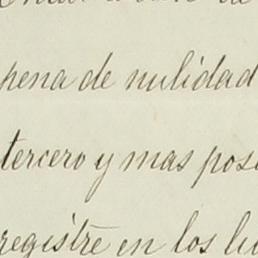 pena de nulidad
tercero y mas pos
registre en los li